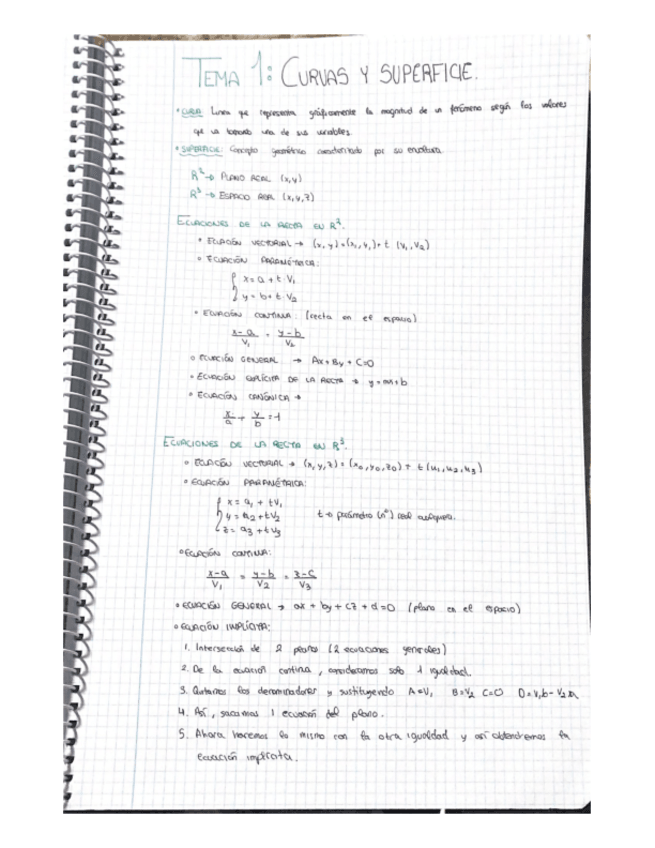 TEMA 1: CURVAS Y SUPERFICIE.
• CURVA: Línea que representa gráficamente la magnitud de un fenómeno según los valores
que va tomando una de sus variables.
• SUPERFICIE: Concepto geométrico caracterizado por su envoltura.
R² → PLANO REAL (x,y)
R³ → ESPACIO REAL (x,y,z)
ECUACIONES DE LA RECTA EN R².
• ECUACIÓN VECTORIAL → (x,y)=(x₁,y₁)+t (v₁,v₂)
• ECUACIÓN PARAMÉTRICA:
{ x = a + t·v₁
y = b + t·v₂
• ECUACIÓN CONTINUA: (recta en el espacio)
x-a/v₁ = y-b/v₂
• ECUACIÓN GENERAL → Ax+By+C=0
• ECUACIÓN EXPLÍCITA DE LA RECTA →
• ECUACIÓN CANÓNICA →
x/a + y/b = 1
ECUACIONES DE LA RECTA EN R³.
• ECUACIÓN VECTORIAL → (x,y,z)=(x₀,y₀,z₀)+ t(u₁,u₂,u₃)
• ECUACIÓN PARAMÉTRICA:
{ x = a₁ + tv₁
y = a₂ + tv₂ t → parámetro (nº) real cualquiera.
z = a₃ + tv₃
• ECUACIÓN CONTINUA:
x-a/v₁ = y-b/v₂ = z-c/v₃
• ECUACIÓN GENERAL → ax + by + cz + d = 0 (plano en el espacio)
• ECUACIÓN IMPLÍCITA:
1. Intersección de 2 planos (2 ecuaciones generales)
2. De la ecuación continua, consideramos solo 1 igualdad.
3. Quitamos los denominadores y sustituyendo A=V₁ B=V₂ C=0 D=V₁b-V₂
4. Así, sacamos 1 ecuación del plano.
5. Ahora hacemos lo mismo con la otra igualdad y así obtendremos la
ecuación implícita.